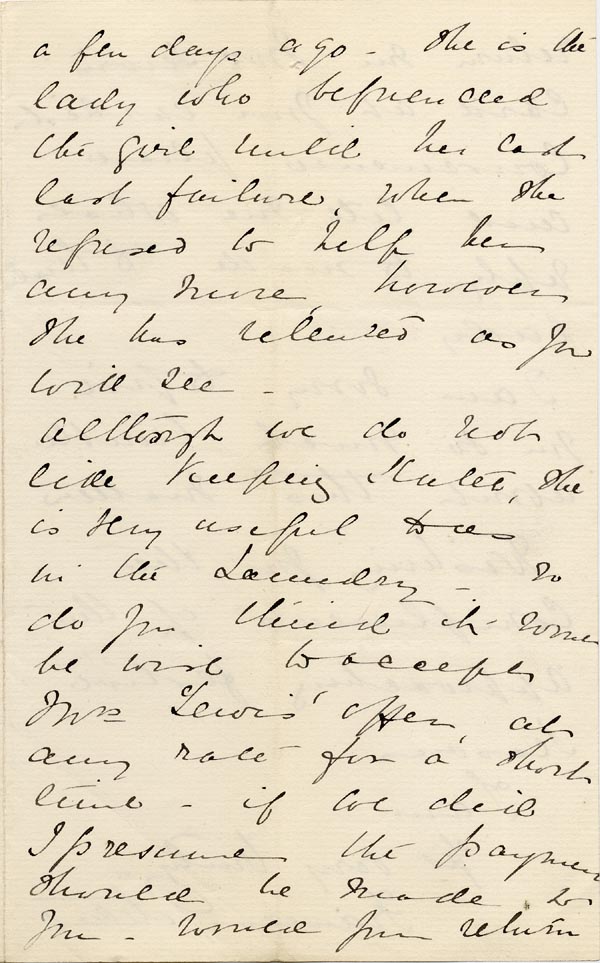 a few days ago - She is the
lady who befriended
the girl until her last
last failure, when she
refused to help her
any more, however
she has relented as you
will see -
although we do not
like keeping the she
is very useful to us
in the Laundry - so
do you think it would
be wise to accept
Mrs Lewis' offer, at
any rate for a short
time - if we did
I presume the payment
should be made to
you - would you return